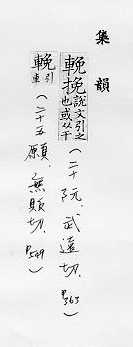 集韻
輓挽說文引之也或从手（二十阮、武遠切、P363）
輓引車（二十五願、無販切、P549）